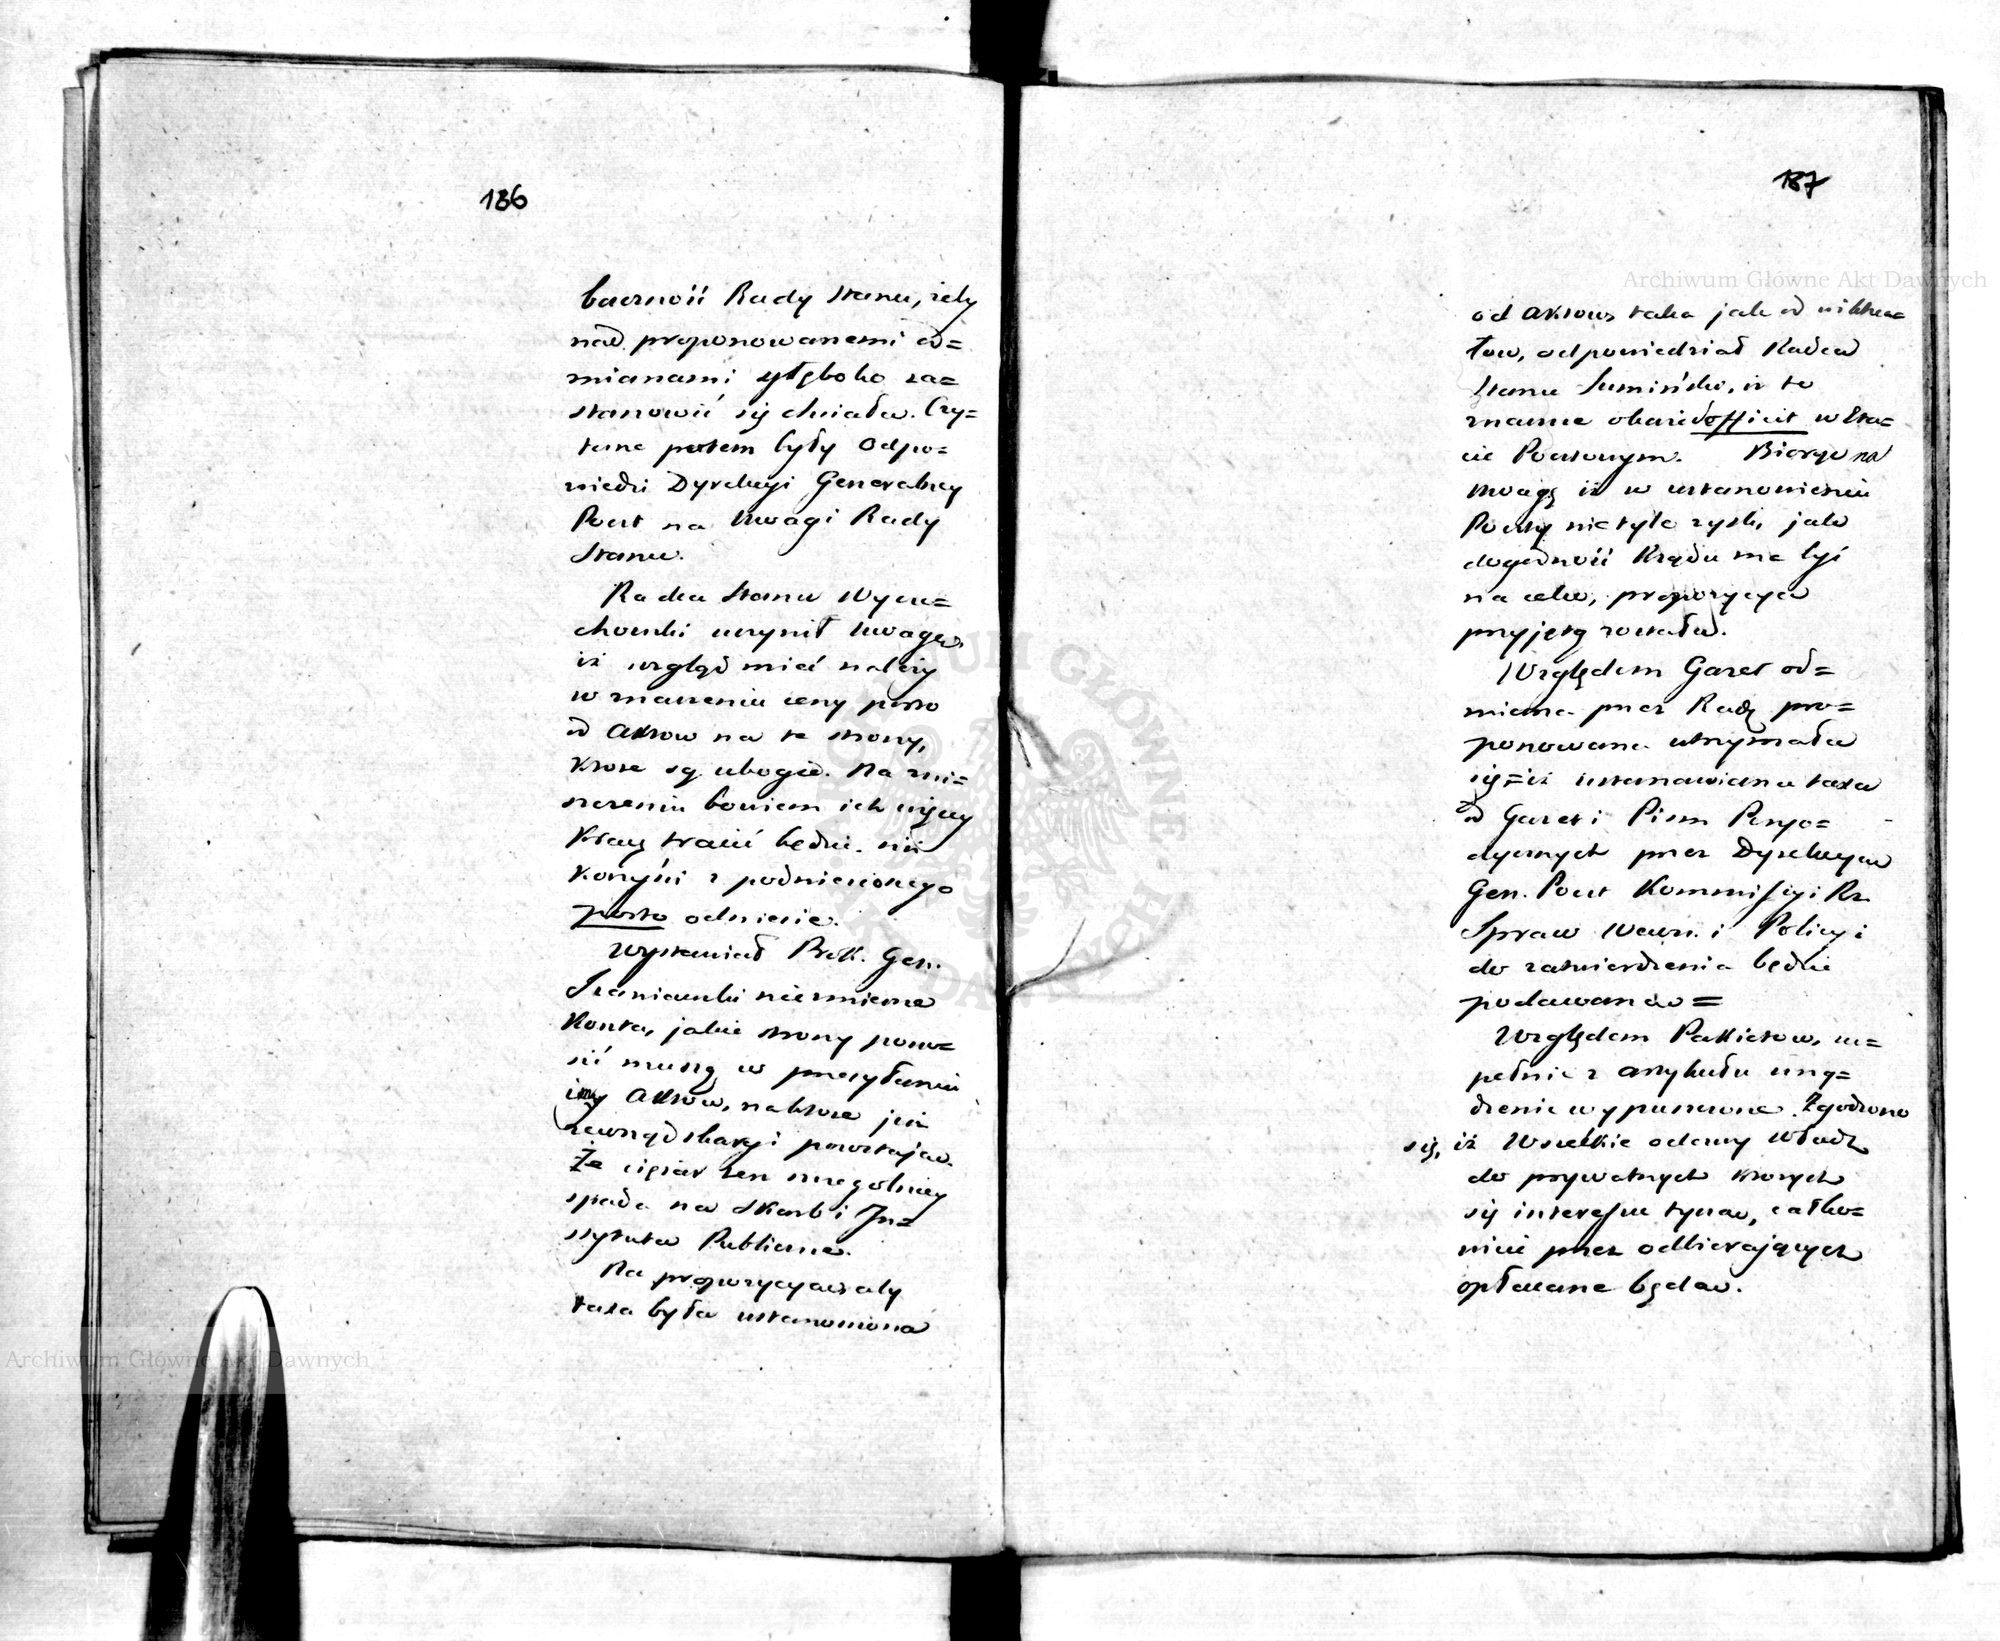 186
baczność Rady Stanu, żeby
nad proponowanemi od=
mianami głęboko za=
stanowić się chciała. Czy=
tane potem były Odpo=
wiedzi Dyrekcyi Generalney
Poczt na Uwagi Rady
Stanu.
Radca Stanu Wycze=
chowski uczynił Uwagę,
iż wzgląd mieć należy
w znaczeniu ceny porto
od Aktow na te strony,
ktore są ubogie. Na zni=
szczeniu bowiem ich więcey
Kray tracić będzie niż
korzyści z podniesionego
porto odniesie.
Wspomniał Prok. Gen.
Szaniawski niezmierne
Koszta, jakie strony pono=
sić muszą w przesyłaniu
Aktow, na ktore już
zewsząd skargi powstają.
Że ciężar ten szczegolniey
spada na Skarb i In=
stytuta Publiczne.
Na propozycyą żeby
taxa była ustanowiona
187
od Aktow taka jak od wiktua=
łow, odpowiedział Radca
Stanu Sumiński, iż to
znaczne okaże deficit w Eta=
cie Pocztowym. Biorąc na
uwagę iż w ustanowieniu
Poczty nie tyle zysk, jak
dogodność Rządu ma być
na celu, propozycya
przyjętą została.
Względem Gazet od=
miana przez Radę pro=
ponowana utrzymała
się = iż ustanawiana taxa
od Gazet i Pism Peryo=
dycznych przez Dyrekcyą
Gen. Poczt Kommissyi Rz.
Spraw Wewn. i Policyi
do zatwierdzenia będzie
podawana =
Względem Pakietow, zu=
pełnie z Artykułu urzą=
dzenie wypuszczone. Zgodzono
się, iż Wszelkie odezwy Władz
do prywatnych ktorych
się interessu tyczą, całko=
wicie przez odbierających
opłacane będą.
Archiwum Główne Akt Dawnych
Archiwum Główne Akt Dawnych